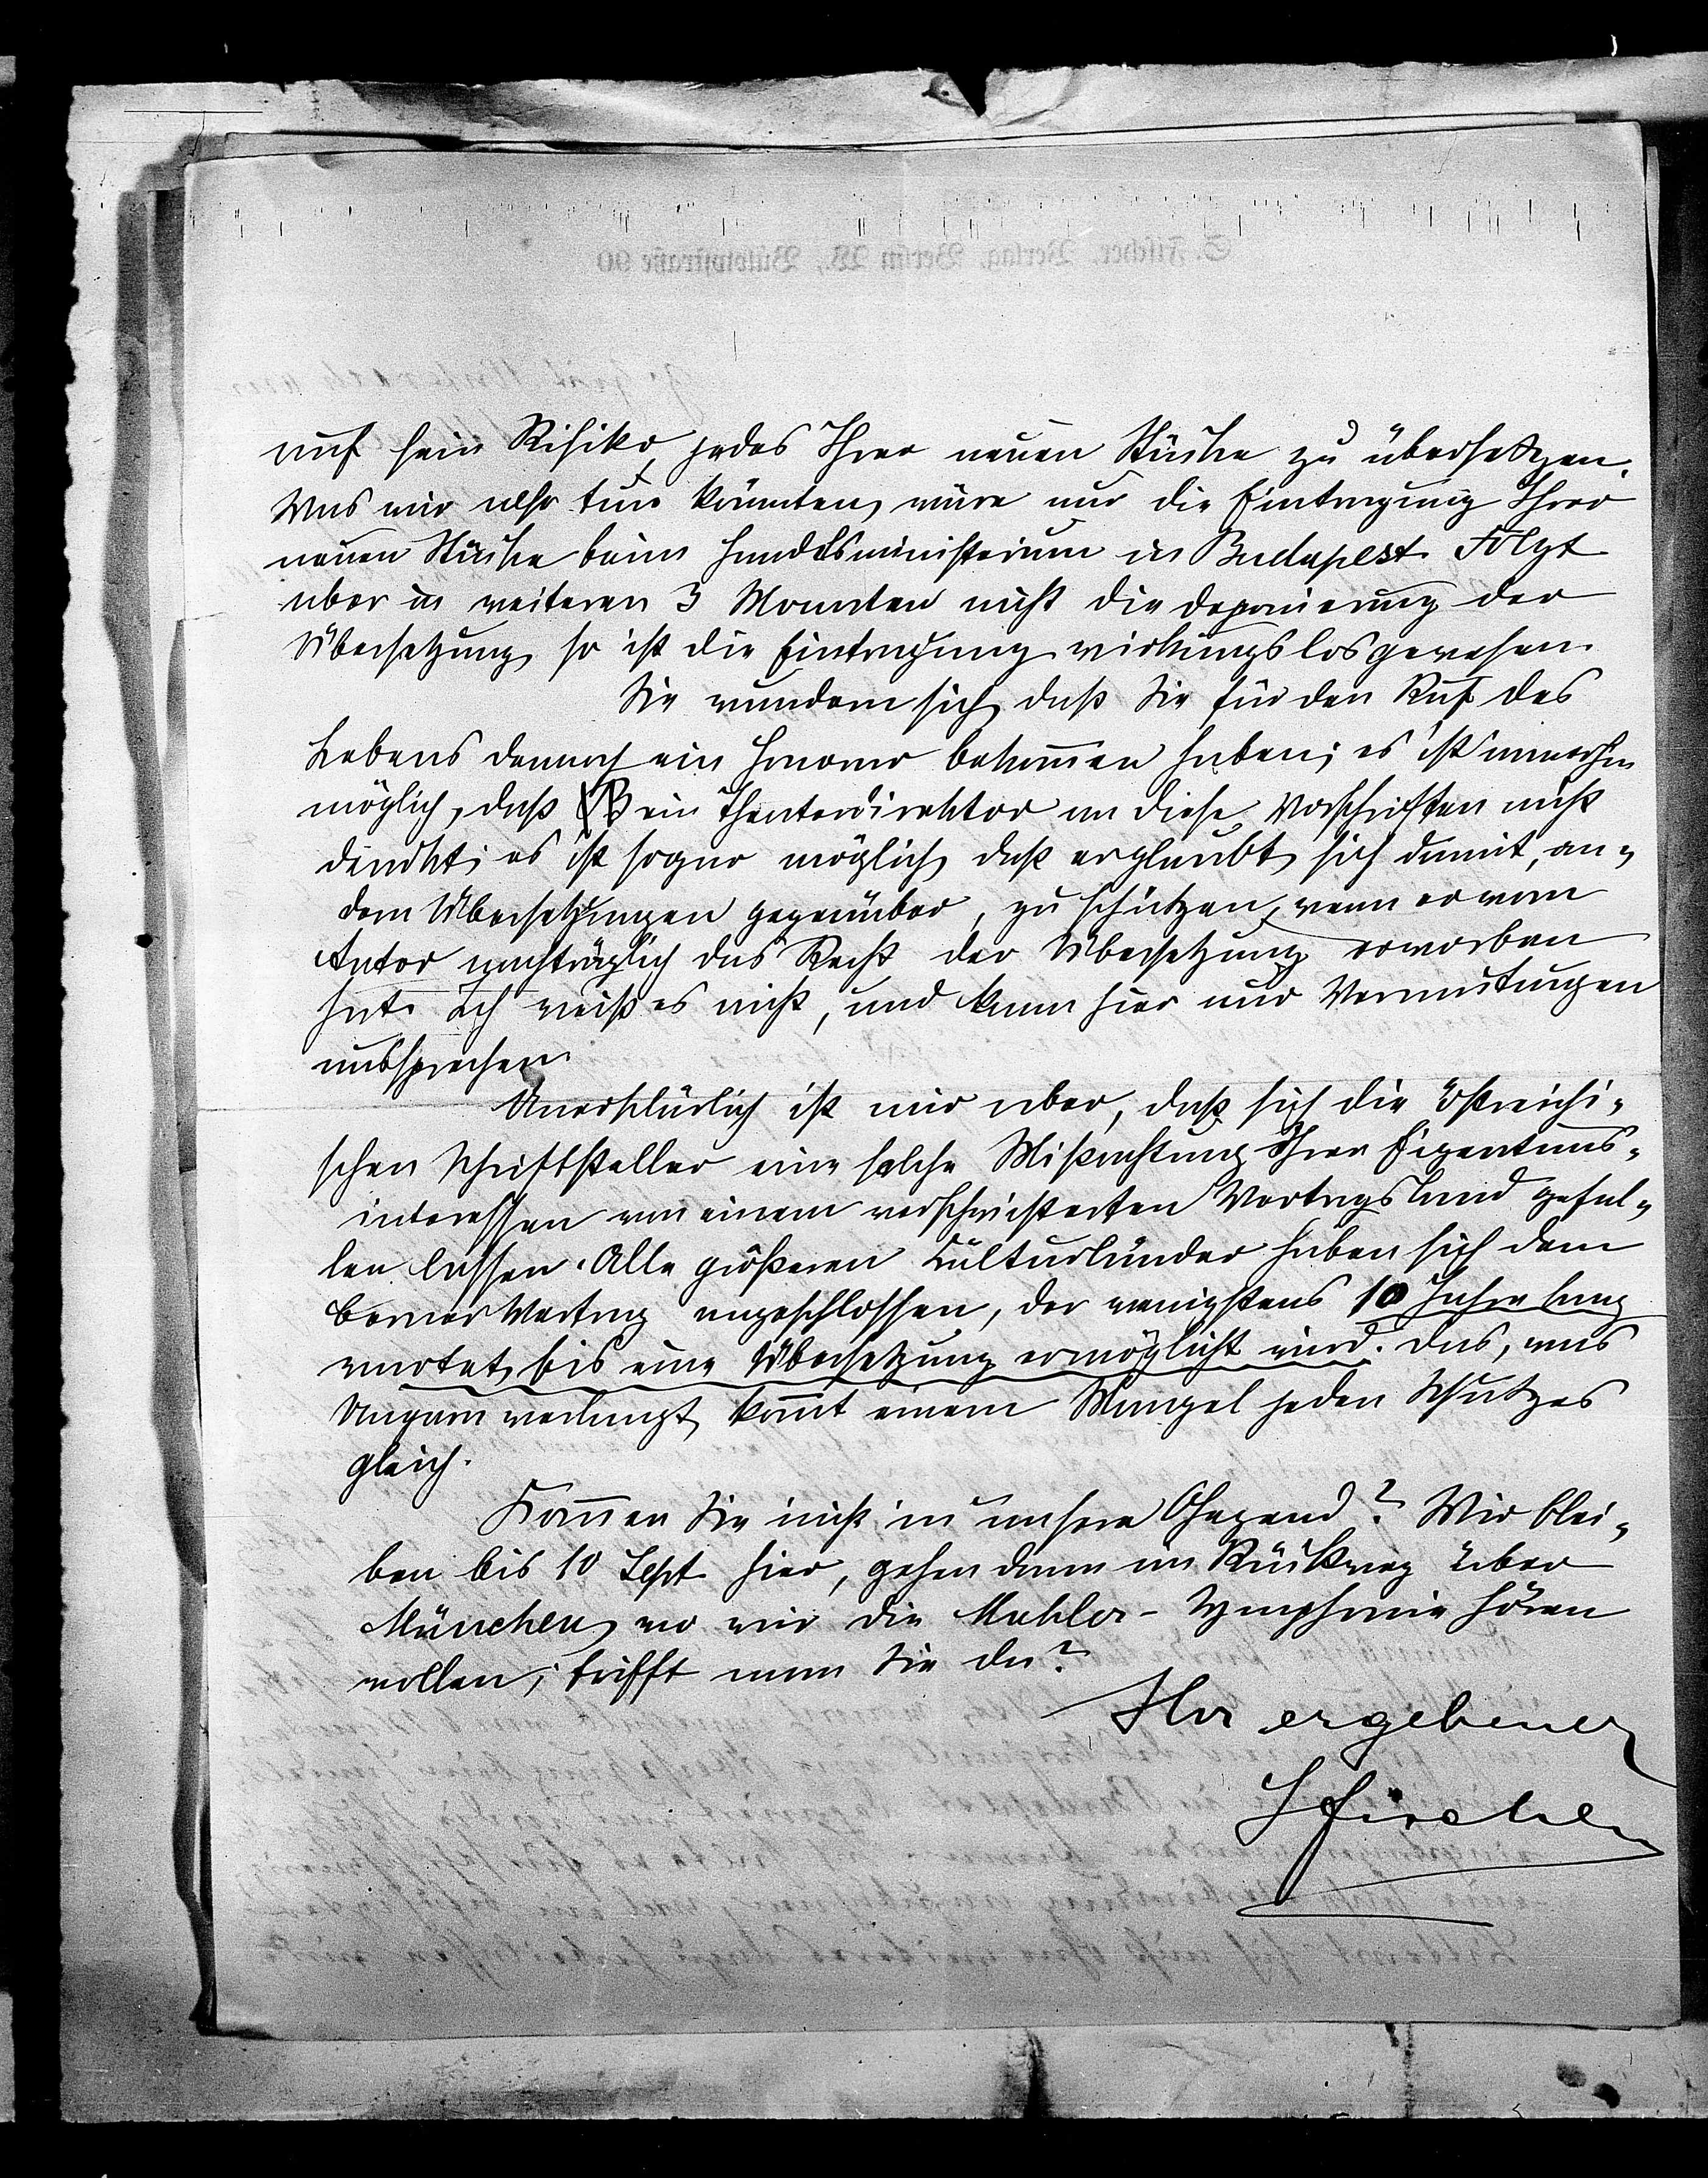 auf sein Risiko, jedes Ihrer neuen Stücke zu übersetzen.
Was wir also tun könnten, wäre nur die Eintragung Ihrer
neuen Stücke beim Handelsministerium in Budapest. Folgt
aber in weiteren 3 Monaten nicht die Deponierung der
Übersetzung, so ist die Eintragung wirkungslos gewesen.
Sie wundern sich, daß Sie für den Ruf des
Lebens dennoch ein Honorar bekommen haben; es ist immerhin
möglich, daß ein Theaterdirektor an diese Vorschriften nicht
denkt; es ist sogar möglich, daß er glaubt, sich damit, an-
dern Übersetzungen gegenüber, zu schützen, wenn er vom
Autor nachträglich das Recht der Übersetzung erworben
hat. Ich weiß es nicht, und kann hier nur Vermutungen
aussprechen.
Unerklärlich ist mir aber, daß sich die östreichi-
schen Schriftsteller eine solche Mißachtung ihrer Eigentums-
interessen von einem verschwisterten Vertragsland gefal-
len lassen. Alle größeren Kulturländer haben sich dem
Berner Vertrag angeschlossen, der wenigstens 10 Jahre lang
wartet, bis eine Übersetzung ermöglicht wird. Das, was
Ungarn verlangt, kommt einem Mangel jeden Schutzes
gleich.
Kommen Sie nicht in unsere Gegend? Wir blei-
ben bis 10 Sept. hier, gehen dann im Rückweg über
München, wo wir die Mahler-Symphonie hören
wollen; trifft man Sie da?
Ihr ergebener
S Fischer
S. Fischer, Verlag, Berlin W., Bülowstraße 90